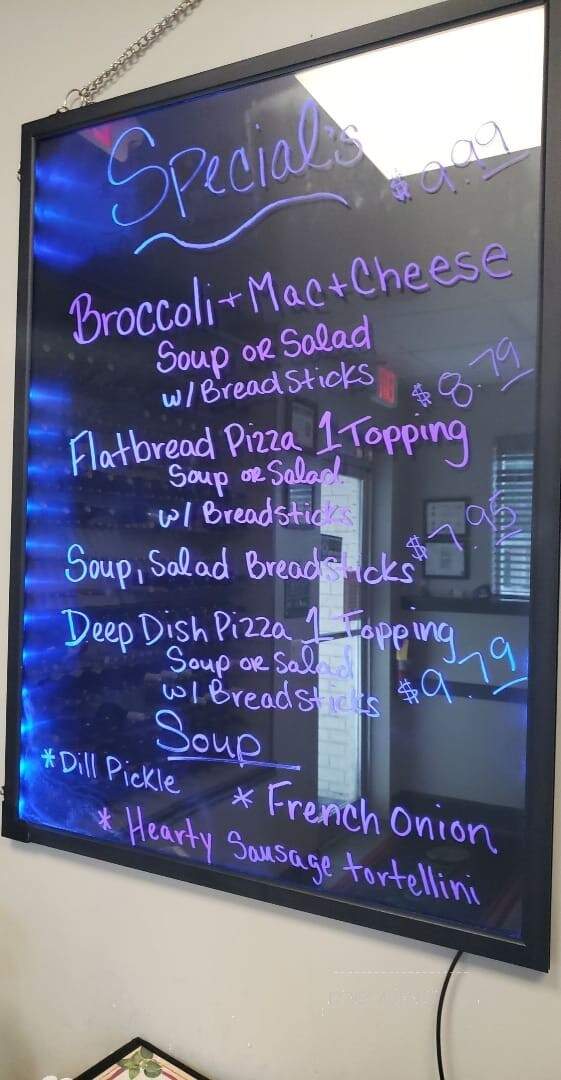 Special's $9.99
Broccoli + Mac + Cheese
Soup or Salad
w/ Breadsticks $8.79
Flatbread Pizza 1 Topping
Soup or Salad
w/ Breadsticks $7.95
Soup, Salad Breadsticks
Deep Dish Pizza 1 Topping
Soup or Salad $9.79
w/ Breadsticks
Soup
*Dill Pickle
* French Onion
* Hearty Sausage tortellini